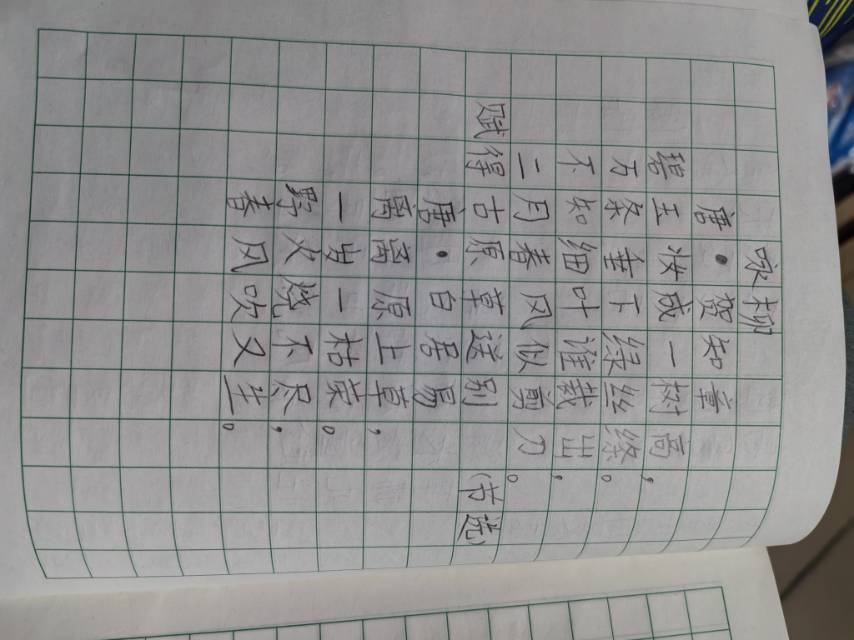 咏柳
唐·贺知章
碧玉妆成一树高，
万条垂下绿丝绦。
不知细叶谁裁出，
二月春风似剪刀。
赋得古原草送别(节选)
唐·白居易
离离原上草，
一岁一枯荣。
野火烧不尽，
春风吹又生。